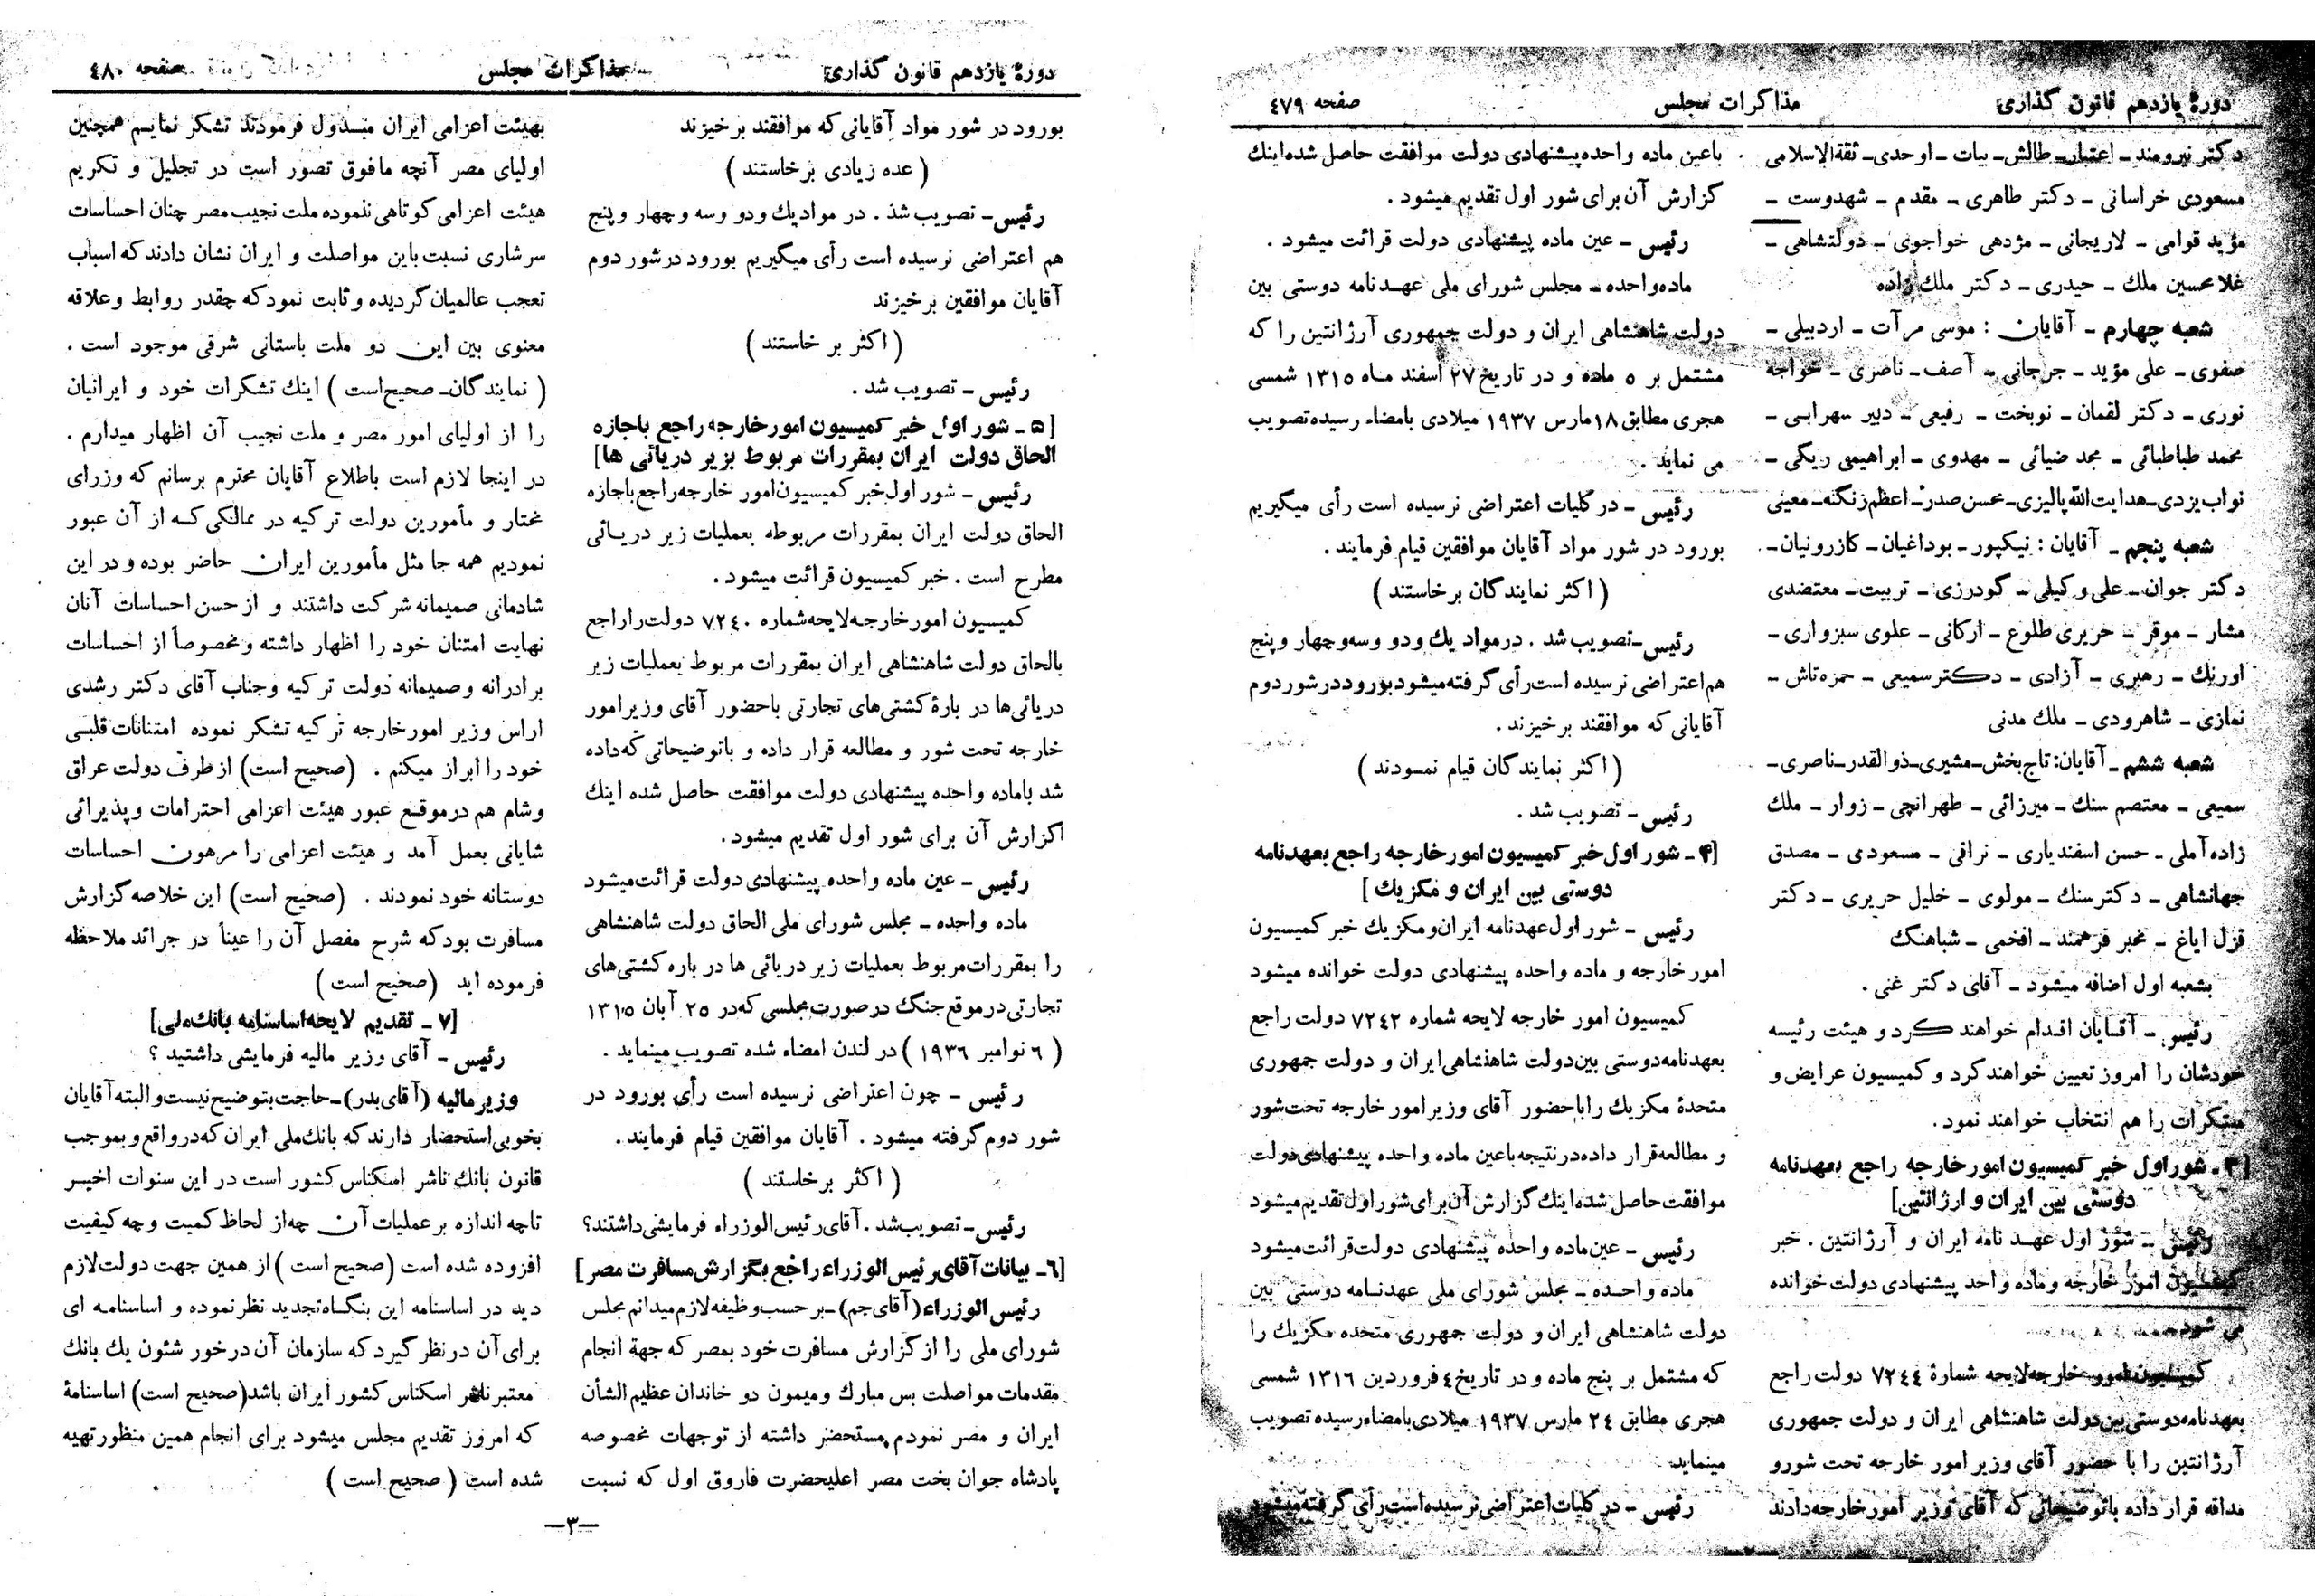 دورهٔ یازدهم قانون گذاری
مذاکرات مجلس
صفحه ٤٧٩
دکتر نیرومند ـ اعتبار ـ طالش ـ بیات ـ اوحدی ـ ثقةالاسلامی
مسعودی خراسانی ـ دکتر طاهری ـ مقدم ـ شهدوست ـ
مؤید قوامی ـ لاریجانی ـ مژدهی خواجوی ـ دولتشاهی ـ
غلامحسین ملك ـ حیدری ـ دکتر ملك زاده
شعبه چهارم ـ آقایان : موسی مرآت ـ اردبیلی ـ
صفوی ـ علی مؤید ـ جرجانی ـ آصف ـ ناصری ـ خواجه
نوری ـ دکتر لقمان ـ نوبخت ـ رفیعی ـ دبیر سهرابی ـ
محمد طباطبائی ـ مجد ضیائی ـ مهدوی ـ ابراهیمی ریگی ـ
نواب یزدی ـ هدایت الله پالیزی ـ محسن صدر ـ اعظم زنگنه ـ معینی
شعبه پنجم ـ آقایان : نیکپور ـ بوداغیان ـ کازرونیان ـ
دکتر جوان ـ علی وکیلی ـ گودرزی ـ تربیت ـ معتضدی
مشار ـ موقر ـ حریری طلوع ـ ارگانی ـ علوی سبزواری ـ
اورنك ـ رهبری ـ آزادی ـ دکتر سمیعی ـ حمزه تاش ـ
نمازی ـ شاهرودی ـ ملك مدنی
شعبه ششم ـ آقایان: تاج بخش ـ مشیری ـ ذوالقدر ـ ناصری ـ
سمیعی ـ معتصم سنك ـ میرزائی ـ طهرانچی ـ زوار ـ ملك
زاده آملی ـ حسن اسفندیاری ـ نراقی ـ مسعودی ـ مصدق
جهانشاهی ـ دکتر سنك ـ مولوی ـ خلیل حریری ـ دکتر
قزل ایاغ ـ مخبر فرهمند ـ افخمی ـ شباهنگ
بشعبه اول اضافه میشود ـ آقای دکتر غنی .
رئیس ـ آقایان اقدام خواهند کرد و هیئت رئیسه
خودشان را امروز تعیین خواهند کرد و کمیسیون عرایض و
مبتکرات را هم انتخاب خواهند نمود.
[۳ ـ شور اول خبر کمیسیون امور خارجه راجع بعهدنامه
دوستی بین ایران و ارژانتین]
رئیس ـ شور اول عهد نامه ایران و آرژانتین . خبر
کمیسیون امور خارجه و ماده واحد پیشنهادی دولت خوانده
می شود
کمیسیون امور خارجه لایحه شمارهٔ ٧٢٤٤ دولت راجع
بعهدنامه دوستی بین دولت شاهنشاهی ایران و دولت جمهوری
آرژانتین را با حضور آقای وزیر امور خارجه تحت شور و
مداقه قرار داده باتوضیحاتی که آقای وزیر امور خارجه دادند
باعین ماده واحده پیشنهادی دولت موافقت حاصل شده اینك
گزارش آن برای شور اول تقدیم میشود .
رئیس ـ عین ماده پیشنهادی دولت قرائت میشود .
ماده واحده ـ مجلس شورای ملی عهدنامه دوستی بین
دولت شاهنشاهی ایران و دولت جمهوری آرژانتین را که
مشتمل بر ٥ ماده و در تاریخ ٢٧ اسفند ماه ١٣١٥ شمسی
هجری مطابق ١٨ مارس ١٩٣٧ میلادی بامضاء رسیده تصویب
می نماید .
رئیس ـ در کلیات اعتراضی نرسیده است رأی میگیریم
بورود در شور مواد آقایان موافقین قیام فرمایند .
( اکثر نمایندگان برخاستند )
رئیس ـ تصویب شد . در مواد یك و دو وسه وچهار وپنج
هم اعتراضی نرسیده است رأی گرفته میشود بورود در شور دوم
آقایانی که موافقند برخیزند .
( اکثر نمایندگان قیام نمودند )
رئیس ـ تصویب شد .
[۴ ـ شور اول خبر کمیسیون امور خارجه راجع بعهدنامه
دوستی بین ایران و مکزیك ]
رئیس ـ شور اول عهدنامه ایران و مکزیك خبر کمیسیون
امور خارجه و ماده واحده پیشنهادی دولت خوانده میشود
کمیسیون امور خارجه لایحه شماره ٧٢٤٢ دولت راجع
بعهدنامه دوستی بین دولت شاهنشاهی ایران و دولت جمهوری
متحدهٔ مکزیك را باحضور آقای وزیر امور خارجه تحت شور
و مطالعه قرار داده در نتیجه باعین ماده واحده پیشنهادی دولت
موافقت حاصل شده اینك گزارش آن برای شور اول تقدیم میشود
رئیس ـ عین ماده واحده پیشنهادی دولت قرائت میشود
ماده واحده ـ مجلس شورای ملی عهدنامه دوستی بین
دولت شاهنشاهی ایران و دولت جمهوری متحده مکزیك را
که مشتمل بر پنج ماده و در تاریخ ٤ فروردین ١٣١٦ شمسی
هجری مطابق ٢٤ مارس ١٩٣٧ میلادی بامضاء رسیده تصویب
مینماید.
رئیس ـ در کلیات اعتراضی نرسیده است رأی گرفته میشود
دورهٔ یازدهم قانون گذاری
مذاکرات مجلس
صفحه ٤٨٠
بورود در شور مواد آقایانی که موافقند برخیزند
( عده زیادی برخاستند )
رئیس ـ تصویب شد . در مواد یك ودو وسه وچهار وپنج
هم اعتراضی نرسیده است رأی میگیریم بورود در شور دوم
آقایان موافقین برخیزند
( اکثر بر خاستند )
رئیس ـ تصویب شد .
[ ۵ ـ شور اول خبر کمیسیون امور خارجه راجع باجازه
الحاق دولت ایران بمقررات مربوط بزیر دریائی ها]
رئیس ـ شور اول خبر کمیسیون امور خارجه راجع باجازه
الحاق دولت ایران بمقررات مربوطه بعملیات زیر دریائی
مطرح است . خبر کمیسیون قرائت میشود .
کمیسیون امور خارجه لایحه شماره ٧٢٤٠ دولت راراجع
بالحاق دولت شاهنشاهی ایران بمقررات مربوط بعملیات زیر
دریائی ها در بارهٔ کشتی های تجارتی باحضور آقای وزیر امور
خارجه تحت شور و مطالعه قرار داده و باتوضیحاتی که داده
شد باماده واحده پیشنهادی دولت موافقت حاصل شده اینك
گزارش آن برای شور اول تقدیم میشود.
رئیس ـ عین ماده واحده پیشنهادی دولت قرائت میشود
ماده واحده ـ مجلس شورای ملی الحاق دولت شاهنشاهی
را بمقررات مربوط بعملیات زیر دریائی ها در باره کشتی های
تجارتی در موقع جنگ در صورت مجلسی که در ٢٥ آبان ١٣١٥
( ٦ نوامبر ١٩٣٦ ) در لندن امضاء شده تصویب مینماید .
رئیس ـ چون اعتراضی نرسیده است رأی بورود در
شور دوم گرفته میشود . آقایان موافقین قیام فرمایند.
( اکثر برخاستند )
رئیس ـ تصویب شد . آقای رئیس الوزراء فرمایشی داشتند؟
[٦ ـ بیانات آقای رئیس الوزراء راجع بگزارش مسافرت مصر ]
رئیس الوزراء (آقای جم) ـ بر حسب وظیفه لازم میدانم مجلس
شورای ملی را از گزارش مسافرت خود بمصر که جهة انجام
مقدمات مواصلت بس مبارك ومیمون دو خاندان عظیم الشأن
ایران و مصر نمودم مستحضر داشته از توجهات مخصوصه
پادشاه جوان بخت مصر اعلیحضرت فاروق اول که نسبت
بهیئت اعزامی ایران مبذول فرمودند تشکر نمایم همچنین
اولیای مصر آنچه مافوق تصور است در تجلیل و تکریم
هیئت اعزامی کوتاهی ننموده ملت نجیب مصر چنان احساسات
سرشاری نسبت باین مواصلت و ایران نشان دادند که اسباب
تعجب عالمیان گردیده و ثابت نمود که چقدر روابط و علاقه
معنوی بین این دو ملت باستانی شرقی موجود است .
( نمایندگان ـ صحیح است ) اینك تشکرات خود و ایرانیان
را از اولیای امور مصر و ملت نجیب آن اظهار میدارم .
در اینجا لازم است باطلاع آقایان محترم برسانم که وزرای
مختار و مأمورین دولت ترکیه در ممالکی که از آن عبور
نمودیم همه جا مثل مأمورین ایران حاضر بوده و در این
شادمانی صمیمانه شرکت داشتند و از حسن احساسات آنان
نهایت امتنان خود را اظهار داشته و مخصوصاً از احساسات
برادرانه و صمیمانه دولت ترکیه وجناب آقای دکتر رشدی
اراس وزیر امور خارجه ترکیه تشکر نموده امتنانات قلبی
خود را ابراز میکنم . (صحیح است) از طرف دولت عراق
وشام هم در موقع عبور هیئت اعزامی احترامات وپذیرائی
شایانی بعمل آمد و هیئت اعزامی را مرهون احساسات
دوستانه خود نمودند . (صحیح است) این خلاصه گزارش
مسافرت بود که شرح مفصل آن را عیناً در جرائد ملاحظه
فرموده اید (صحیح است )
[۷ ـ تقدیم لایحه اساسنامه بانك ملی]
رئیس ـ آقای وزیر مالیه فرمایشی داشتید ؟
وزیر مالیه (آقای بدر) ـ حاجت بتوضیح نیست والبته آقایان
بخوبی استحضار دارند که بانك ملی ایران که در واقع و بموجب
قانون بانك ناشر اسکناس کشور است در این سنوات اخیر
تاچه اندازه بر عملیات آن چه از لحاظ کمیت و چه کیفیت
افزوده شده است (صحیح است ) از همین جهت دولت لازم
دید در اساسنامه این بنگاه تجدید نظر نموده و اساسنامه ای
برای آن در نظر گیرد که سازمان آن در خور شئون یك بانك
معتبر ناشر اسکناس کشور ایران باشد (صحیح است) اساسنامهٔ
که امروز تقدیم مجلس میشود برای انجام همین منظور تهیه
شده است ( صحیح است )
—٣—